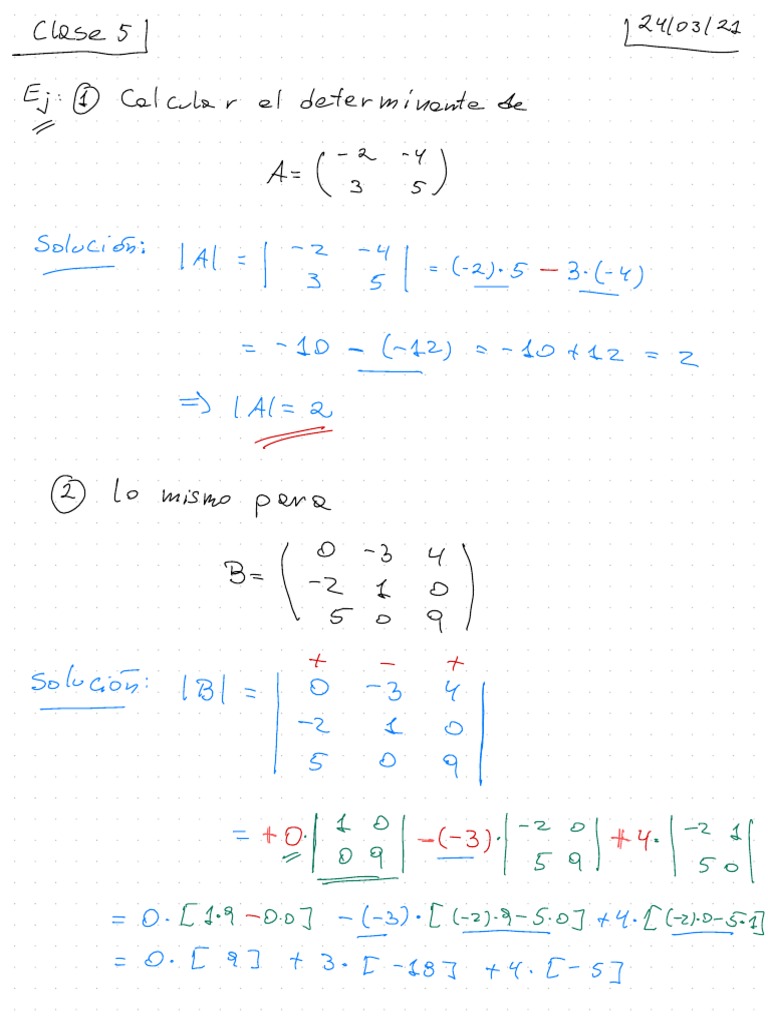 Clase 5
24/03/21
Ej: ① Calcular el determinante de
A = ( -2 -4
3 5 )
Solución: |A| = | -2 -4
3 5 | = (-2)·5 - 3·(-4)
= -10 - (-12) = -10 + 12 = 2
⇒ |A| = 2
② Lo mismo para
B = ( 0 -3 4
-2 1 0
5 0 9 )
+ - +
Solución: |B| = | 0 -3 4
-2 1 0
5 0 9 |
= +0·| 1 0 | -(-3)·| -2 0 | +4·| -2 1 |
| 0 9 | | 5 9 | | 5 0 |
= 0·[1·9-0·0] -(-3)·[(-2)·9-5·0] +4·[(-2)·0-5·1]
= 0·[9] + 3·[-18] + 4·[-5]